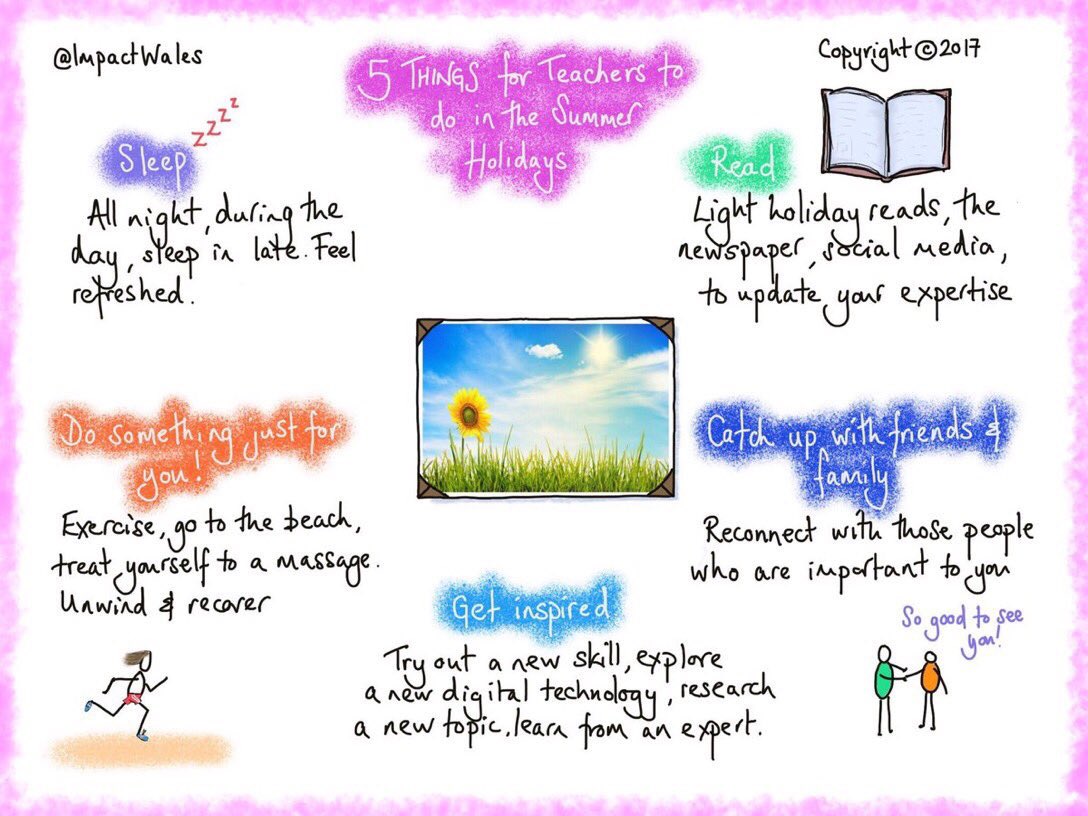 @ImpactWales
5 THINGS for Teachers to
do in the Summer
Holidays
Copyright © 2017
zzzz
Sleep
All night, during the
day, sleep in late. Feel
refreshed.
Read
Light holiday reads, the
newspaper, social media,
to update your expertise
Do something just for
you!
Exercise, go to the beach,
treat yourself to a massage.
Unwind & recover
Catch up with friends &
family
Reconnect with those people
who are important to you
So good to see
you!
Get inspired
Try out a new skill, explore
a new digital technology, research
a new topic, learn from an expert.